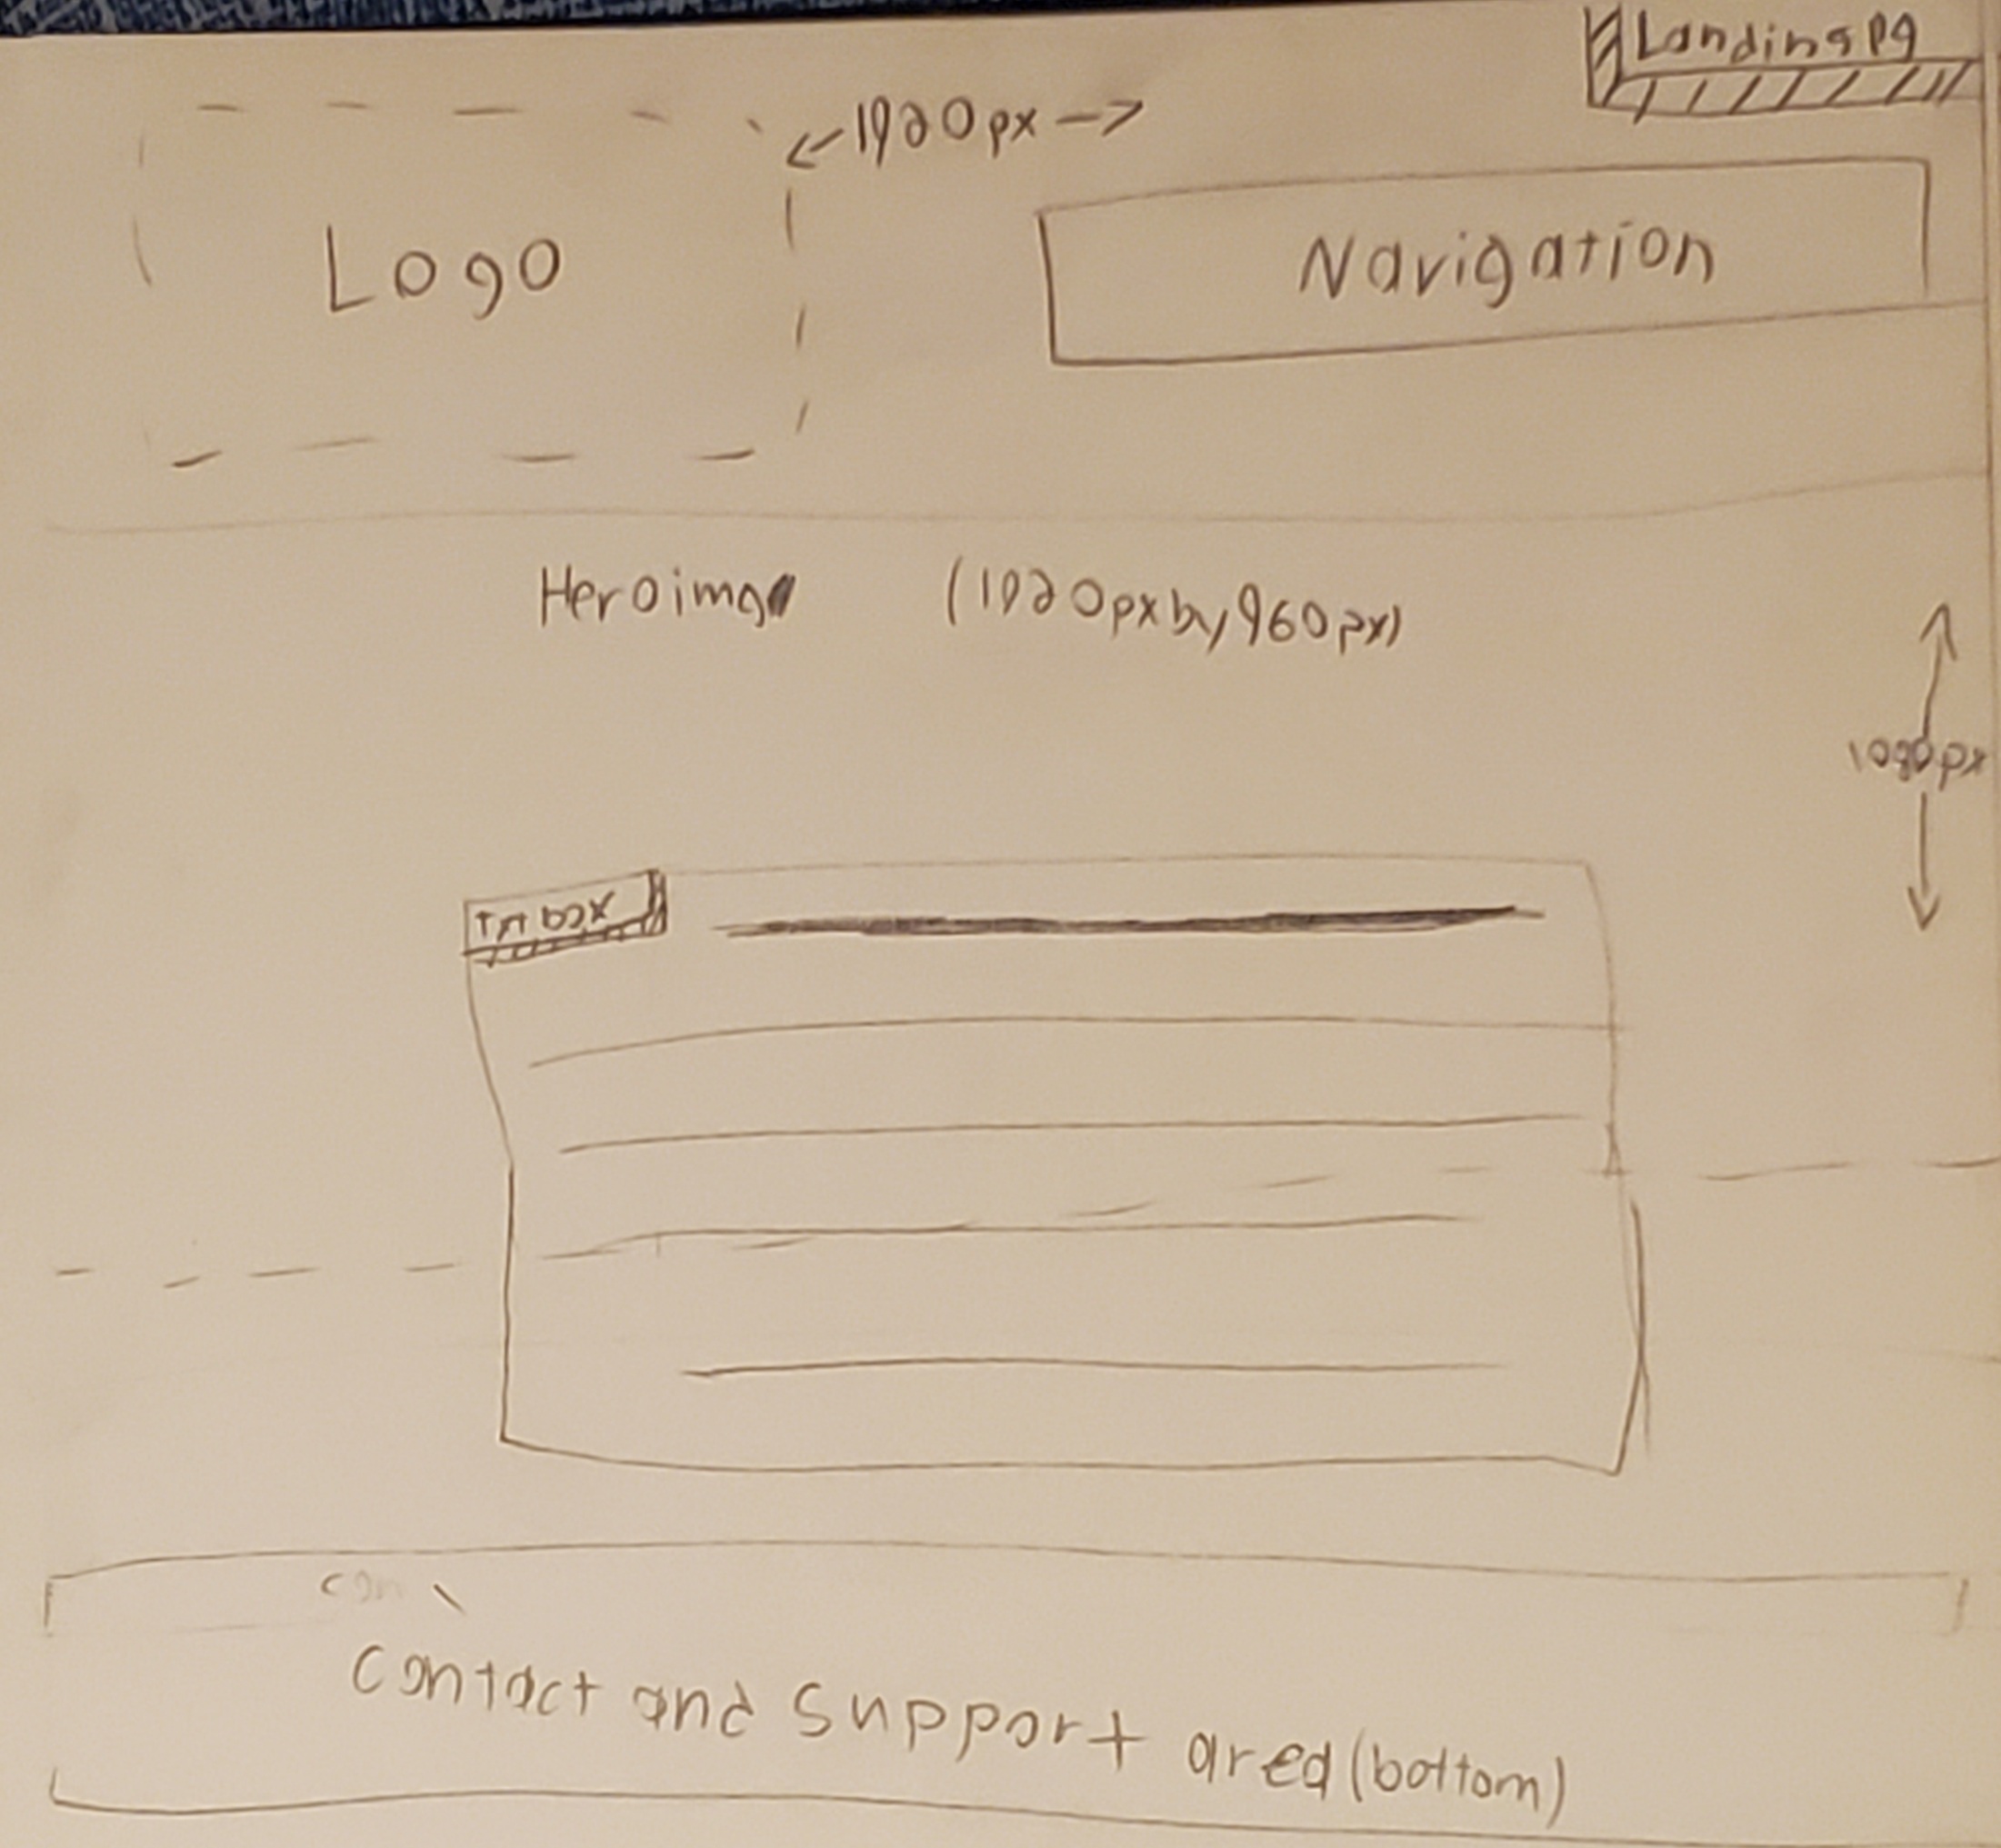 Landing pg
←1920px→
Logo
Navigation
Hero img (1920px by 960px)
1080px
Txt box
Con
Contact and Support area (bottom)